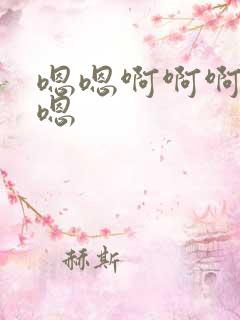 嗯嗯啊啊啊
嗯
赫斯